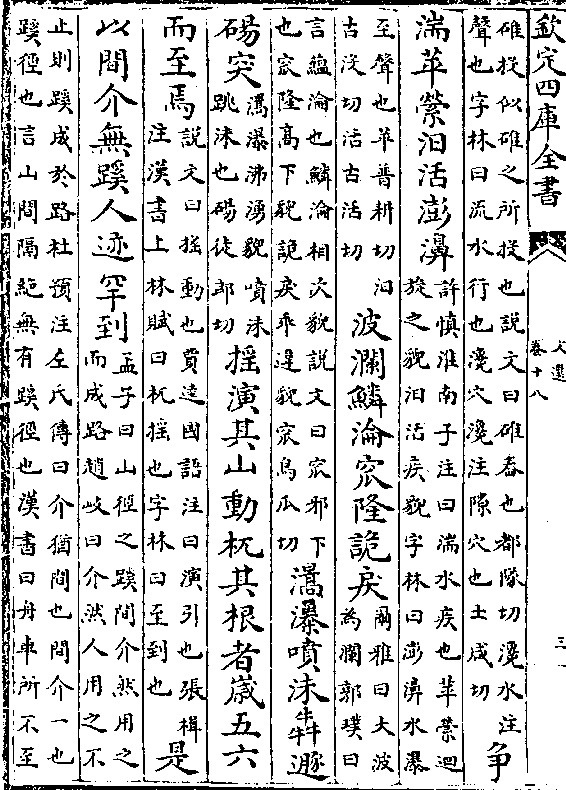 欽定四庫全書
文選
卷十八
三
碓投似碓之所投也說文曰碓舂也都隊切瀺水注
聲也字林曰流水行也瀺穴瀺注隙穴也士咸切
争
湍苹縈汩活澎濞
許慎淮南子注曰湍水疾也苹縈迴
旋之貌汩活疾貌字林曰澎濞水瀑
至聲也苹普耕切汩
古没切活古活切
波瀾鱗淪窊隆詭戾
爾雅曰大波
為瀾郭璞曰
言藴淪也鱗淪相次貌說文曰窊邪下
也窊隆高下貌詭戾乖違貌窊烏瓜切
滈瀑噴沬犇遯
碭突
滈瀑沸湧貌噴沬
跳沬也碭徒郎切
揺演其山動杌其根者歳五六
而至焉
說文曰揺動也賈逵國語注曰演引也張楫
注漢書上林賦曰杌揺也字林曰至到也
是
以間介無蹊人迹罕到
孟子曰山徑之蹊間介然用之
而成路趙岐曰介然人用之不
止則蹊成於路杜預注左氏傳曰介猶間也間介一也
蹊徑也言山間隔絶無有蹊徑也漢書曰舟車所不至